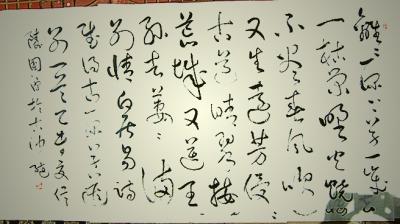 離離原上草一歲
一枯榮野火燒
不盡春風吹
又生遠芳侵
古道晴翠接
荒城又送王
孫去萋萋滿
別情白居易詩
賦得古原草送
別一首